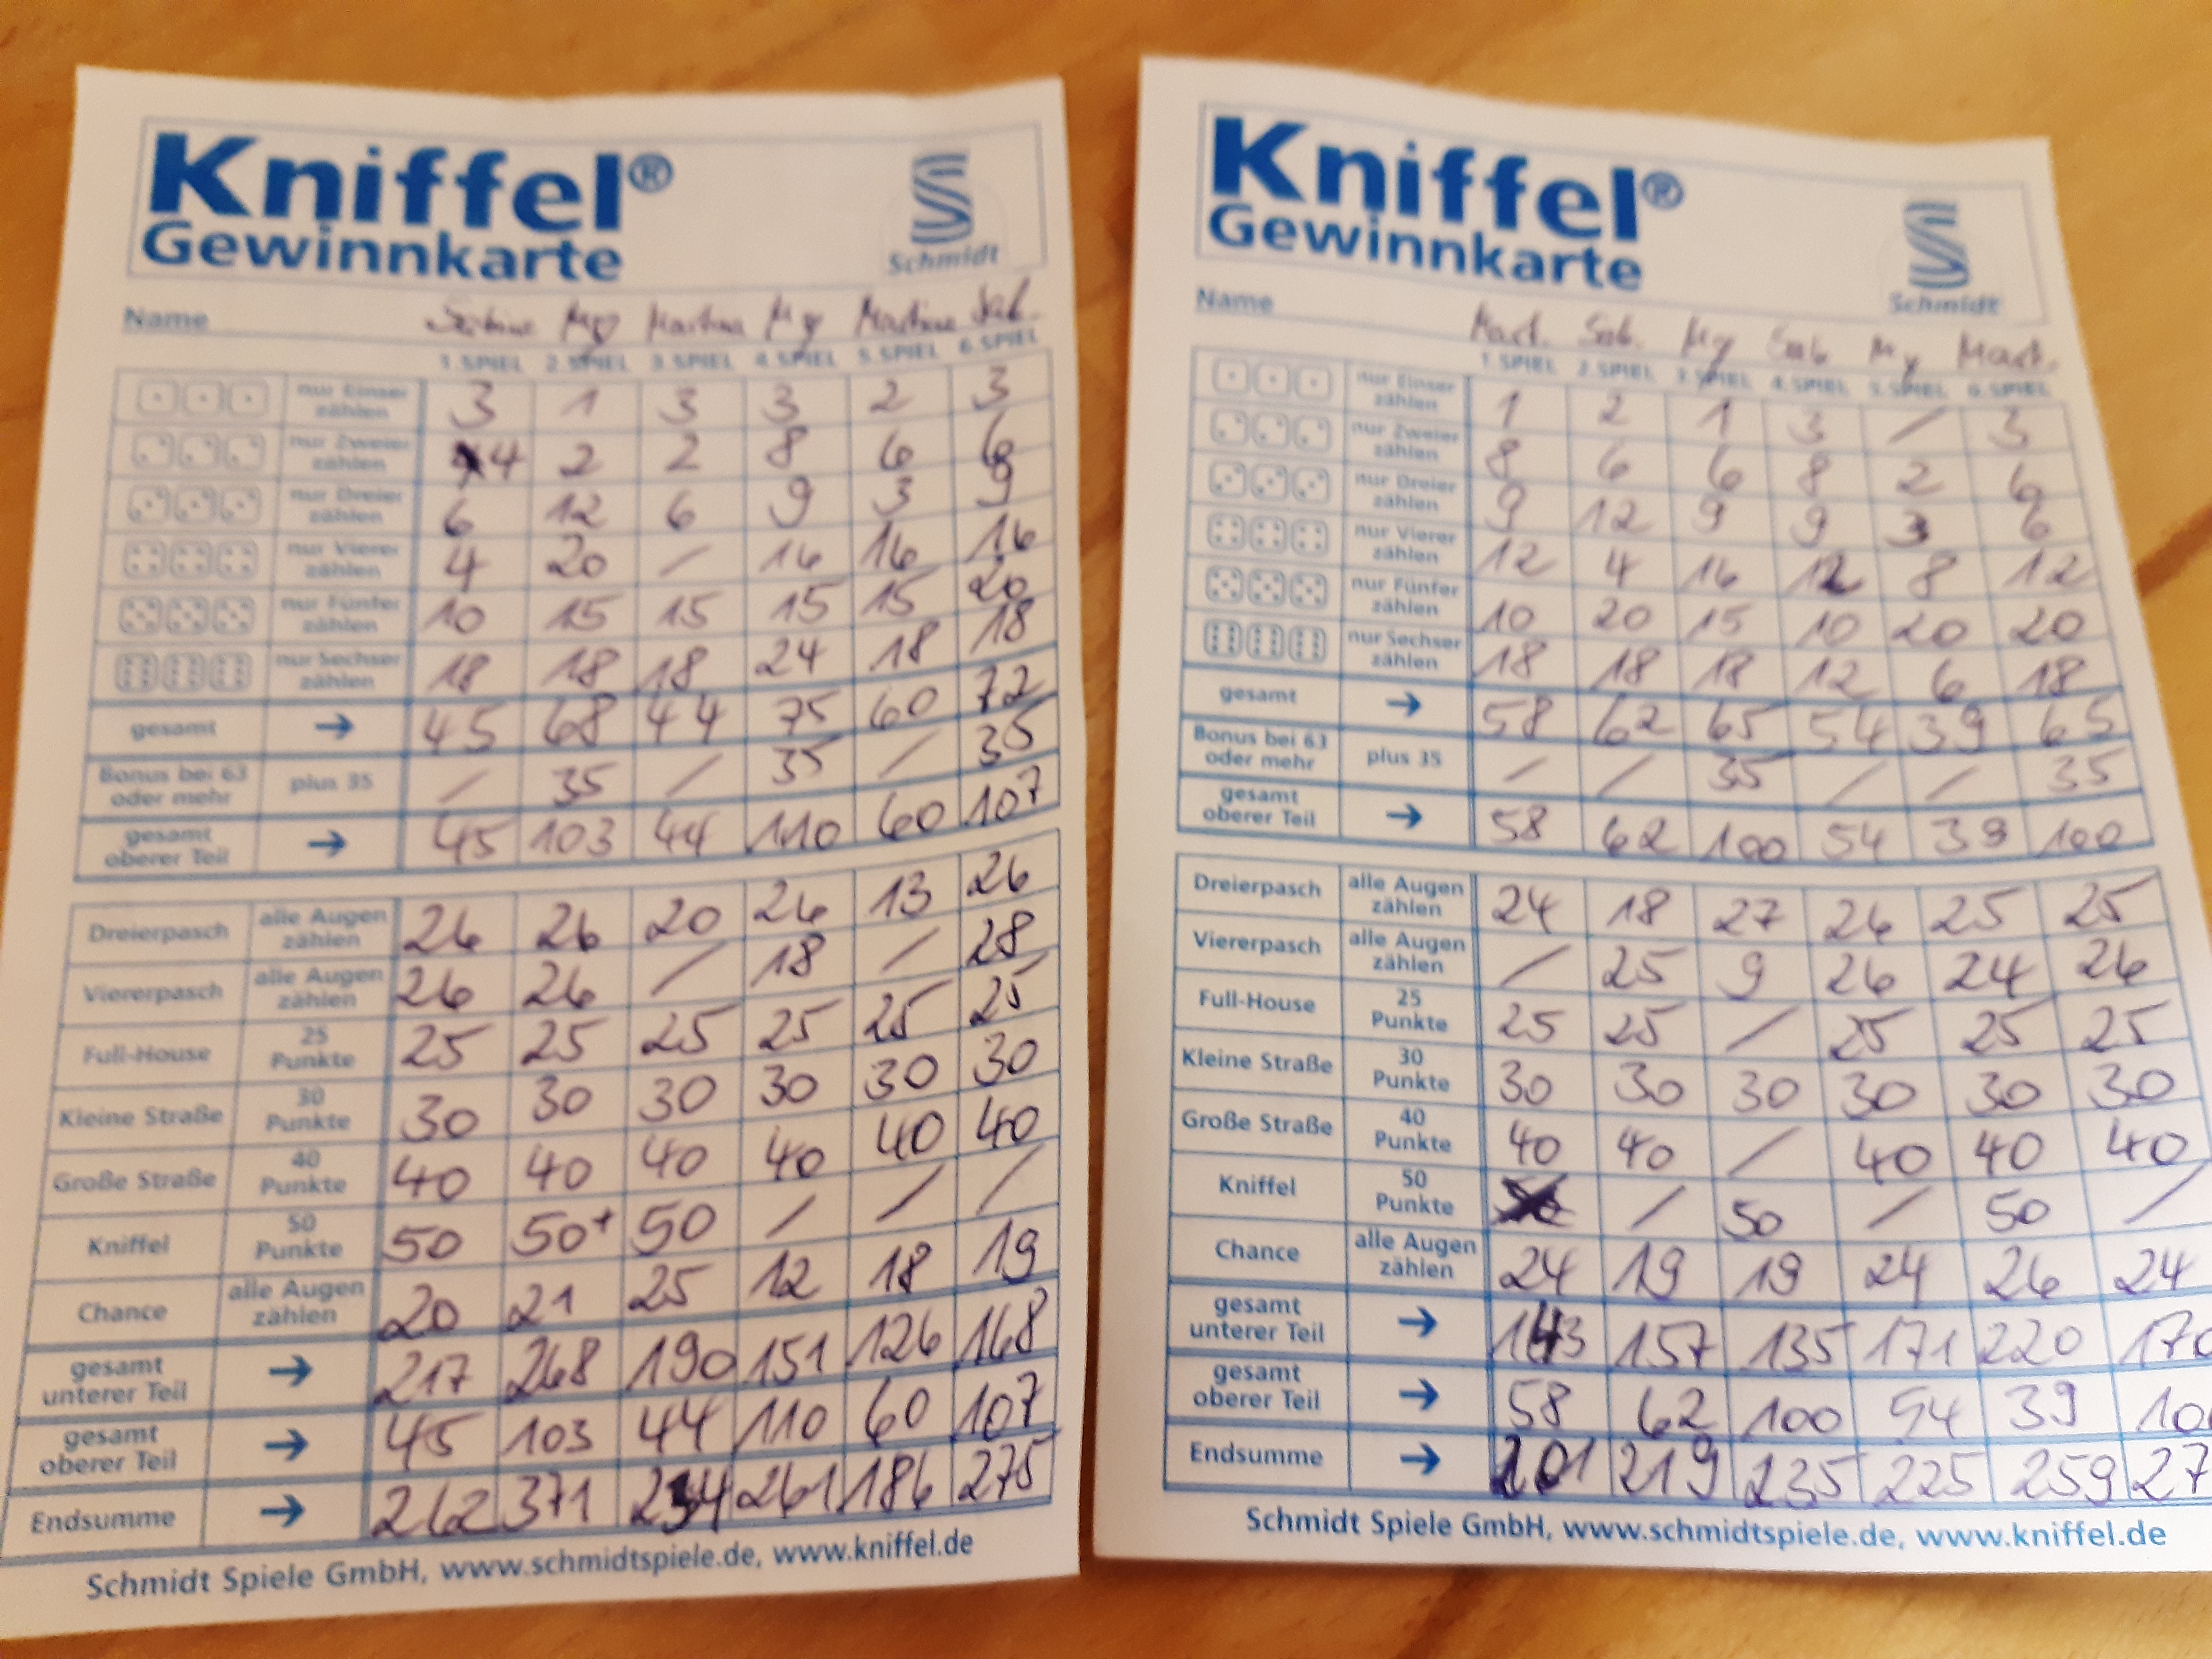 Kniffel®
Gewinnkarte
Schmidt
Name Sabine My Martina My Martina Sab.
1. SPIEL 2. SPIEL 3. SPIEL 4. SPIEL 5. SPIEL 6. SPIEL
nur Einser zählen 3 1 3 3 2 3
nur Zweier zählen 4 2 2 8 6 6
nur Dreier zählen 6 12 6 9 3 9
nur Vierer zählen 4 20 / 16 16 16
nur Fünfer zählen 10 15 15 15 15 20
nur Sechser zählen 18 18 18 24 18 18
gesamt → 45 68 44 75 60 72
Bonus bei 63 oder mehr plus 35 / 35 / 35 / 35
gesamt oberer Teil → 45 103 44 110 60 107
Dreierpasch alle Augen zählen 26 26 20 26 13 26
Viererpasch alle Augen zählen 26 26 / 18 / 28
Full-House 25 Punkte 25 25 25 25 25 25
Kleine Straße 30 Punkte 30 30 30 30 30 30
Große Straße 40 Punkte 40 40 40 40 40 40
Kniffel 50 Punkte 50 50+ 50 / / /
Chance alle Augen zählen 20 21 25 12 18 19
gesamt unterer Teil → 217 268 190 151 126 168
gesamt oberer Teil → 45 103 44 110 60 107
Endsumme → 262 371 234 261 186 275
Schmidt Spiele GmbH, www.schmidtspiele.de, www.kniffel.de
Kniffel®
Gewinnkarte
Schmidt
Name Mart. Sab. My Sab. My Mart.
1. SPIEL 2. SPIEL 3. SPIEL 4. SPIEL 5. SPIEL 6. SPIEL
nur Einser zählen 1 2 1 3 / 3
nur Zweier zählen 8 6 6 8 2 6
nur Dreier zählen 9 12 9 9 3 6
nur Vierer zählen 12 4 16 12 8 12
nur Fünfer zählen 10 20 15 10 20 20
nur Sechser zählen 18 18 18 12 6 18
gesamt → 58 62 65 54 39 65
Bonus bei 63 oder mehr plus 35 / / 35 / / 35
gesamt oberer Teil → 58 62 100 54 39 100
Dreierpasch alle Augen zählen 24 18 27 26 25 25
Viererpasch alle Augen zählen / 25 9 26 24 26
Full-House 25 Punkte 25 25 / 25 25 25
Kleine Straße 30 Punkte 30 30 30 30 30 30
Große Straße 40 Punkte 40 40 / 40 40 40
Kniffel 50 Punkte / 50 / 50 /
Chance alle Augen zählen 24 19 19 24 26 24
gesamt unterer Teil → 143 157 135 171 220 170
gesamt oberer Teil → 58 62 100 54 39 10
Endsumme → 201 219 235 225 259 27
Schmidt Spiele GmbH, www.schmidtspiele.de, www.kniffel.de